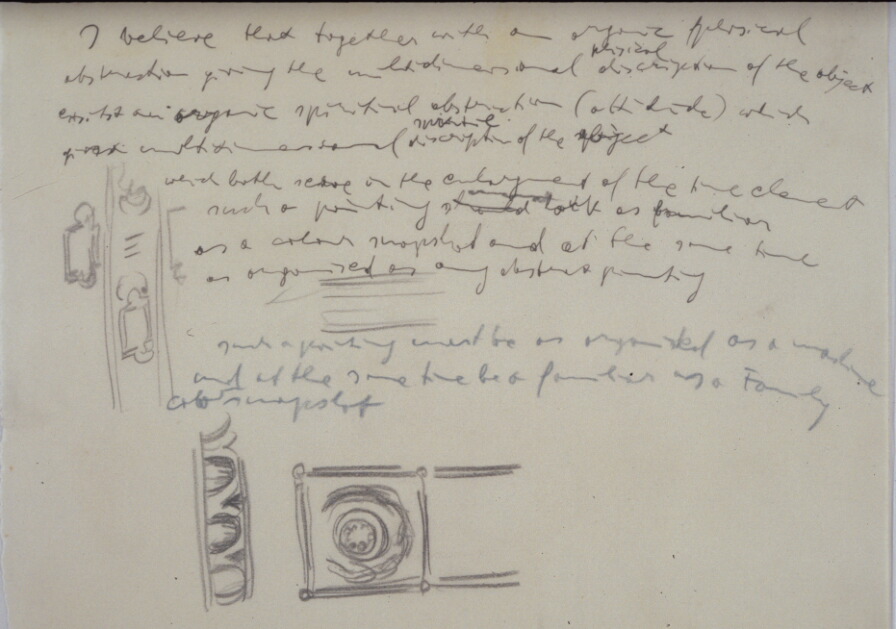 I believe that together with an organic physical
abstraction giving the multidimensional physical discription of the object
exists an organic spiritual abstraction (attitude) which
multidimensional spiritual discription of the object
which both serve in the enlargement of the time element
such a painting should look as familiar
as a colour snapshot and at the same time
as organised as any abstract painting
such a painting must be as organised as a machine
and at the same time be a familiar as a Family
snapshot